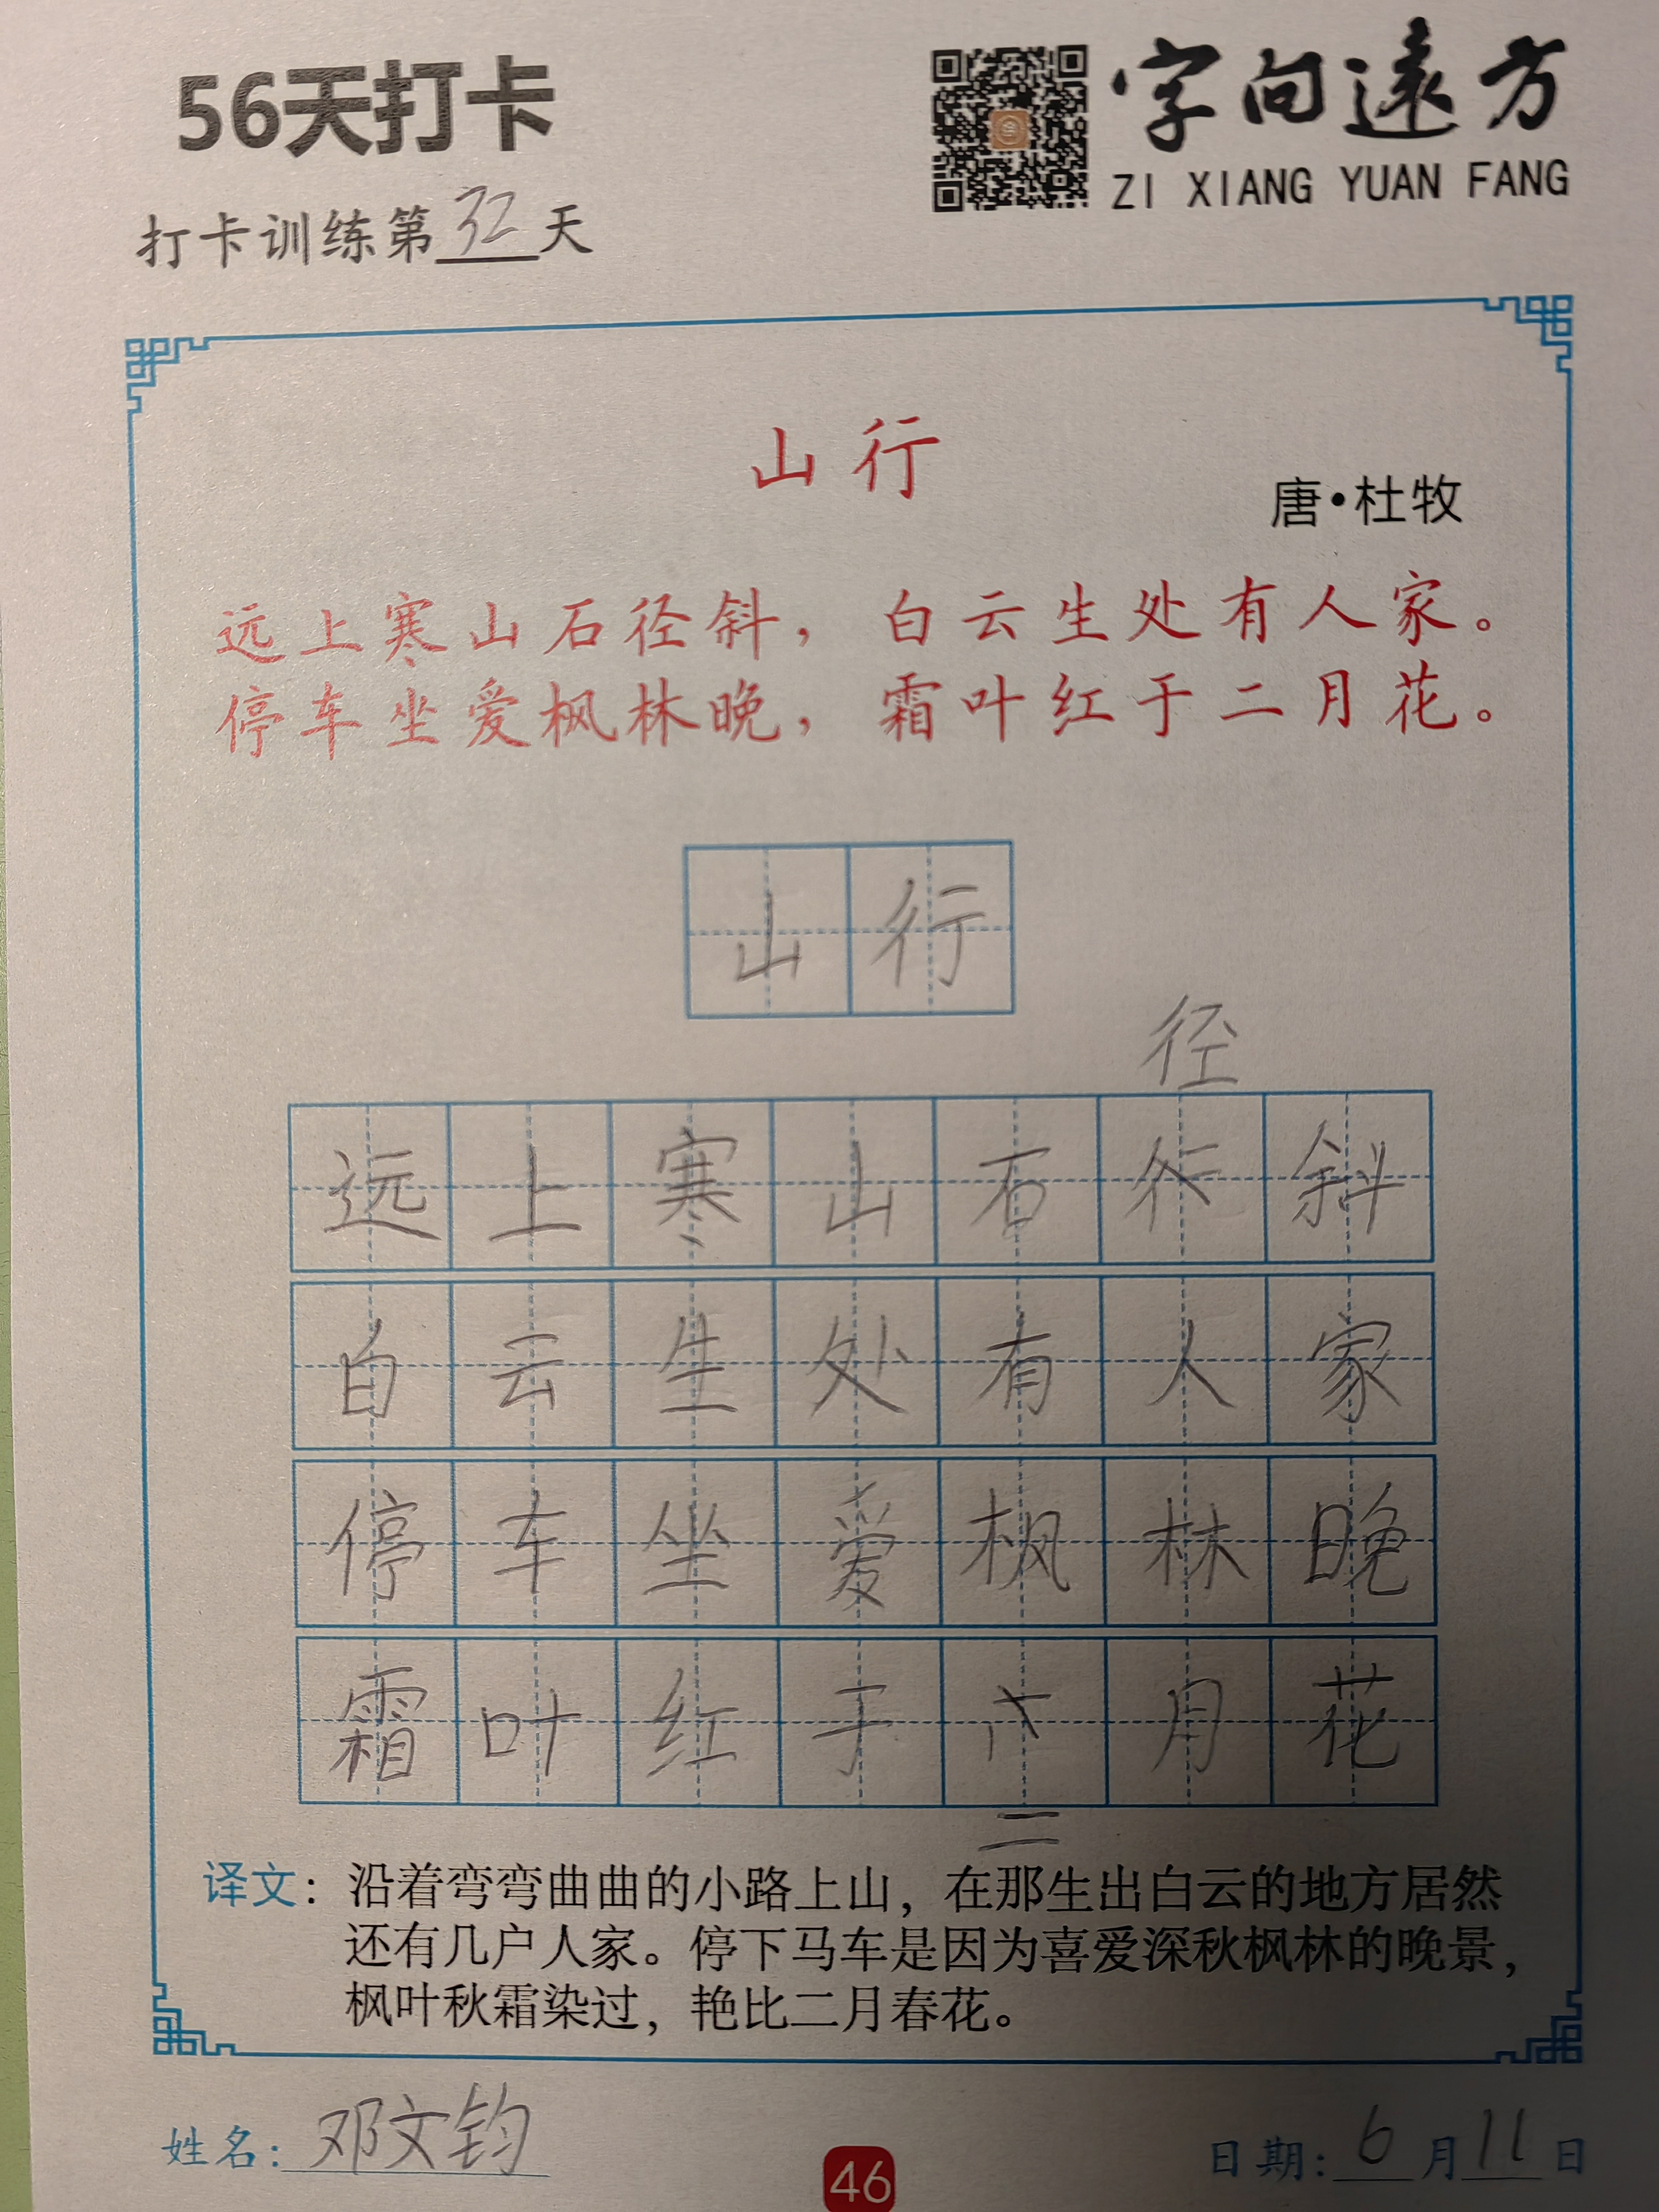 56天打卡
字向遠方
ZI XIANG YUAN FANG
打卡训练第32天
山行
唐·杜牧
远上寒山石径斜，白云生处有人家。
停车坐爱枫林晚，霜叶红于二月花。
山行
径
远上寒山石斜
白云生处有人家
停车坐爱枫林晚
霜叶红于月花
二
译文：沿着弯弯曲曲的小路上山，在那生出白云的地方居然
还有几户人家。停下马车是因为喜爱深秋枫林的晚景，
枫叶秋霜染过，艳比二月春花。
姓名：邓文钧
46
日期：6月11日